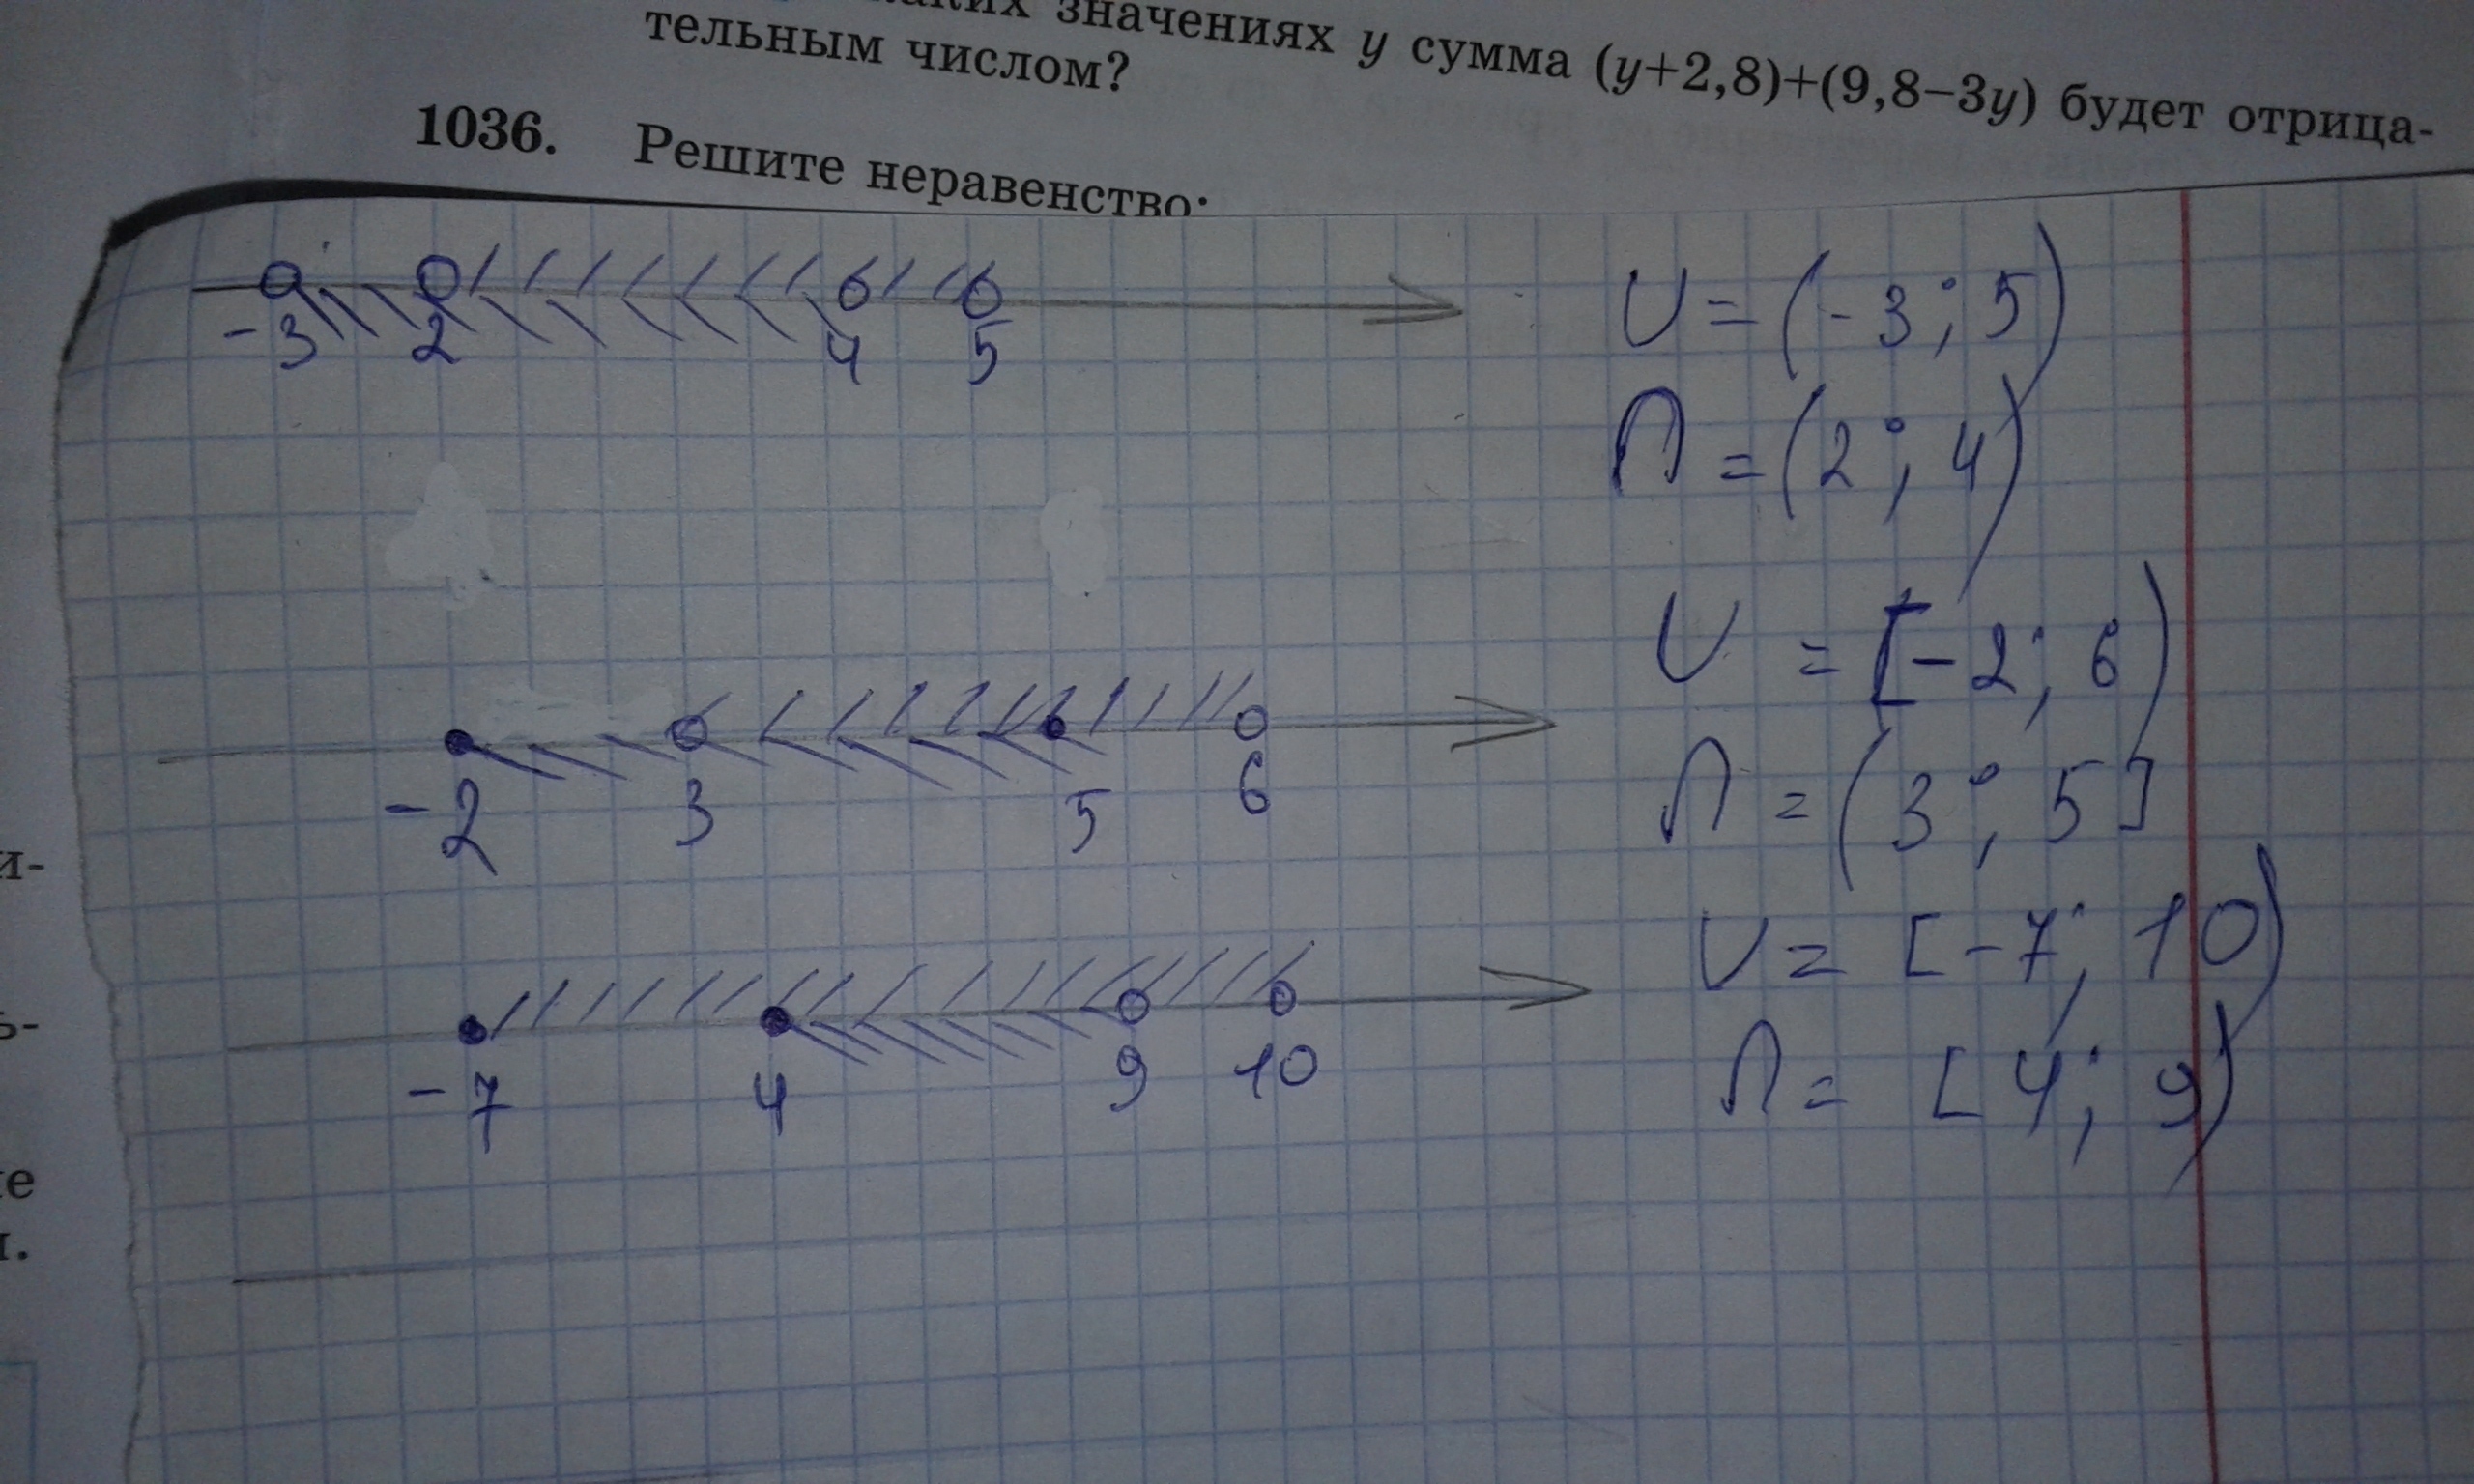 значениях y сумма (y+2,8)+(9,8−3y) будет отрица-
тельным числом?
1036. Решите неравенство:
-3 2 4 5
U = (-3; 5)
∩ = (2; 4)
-2 3 5 6
U = [-2; 6)
∩ = (3; 5]
-7 4 9 10
U = [-7; 10)
∩ = [4; 9)
и-
ь-